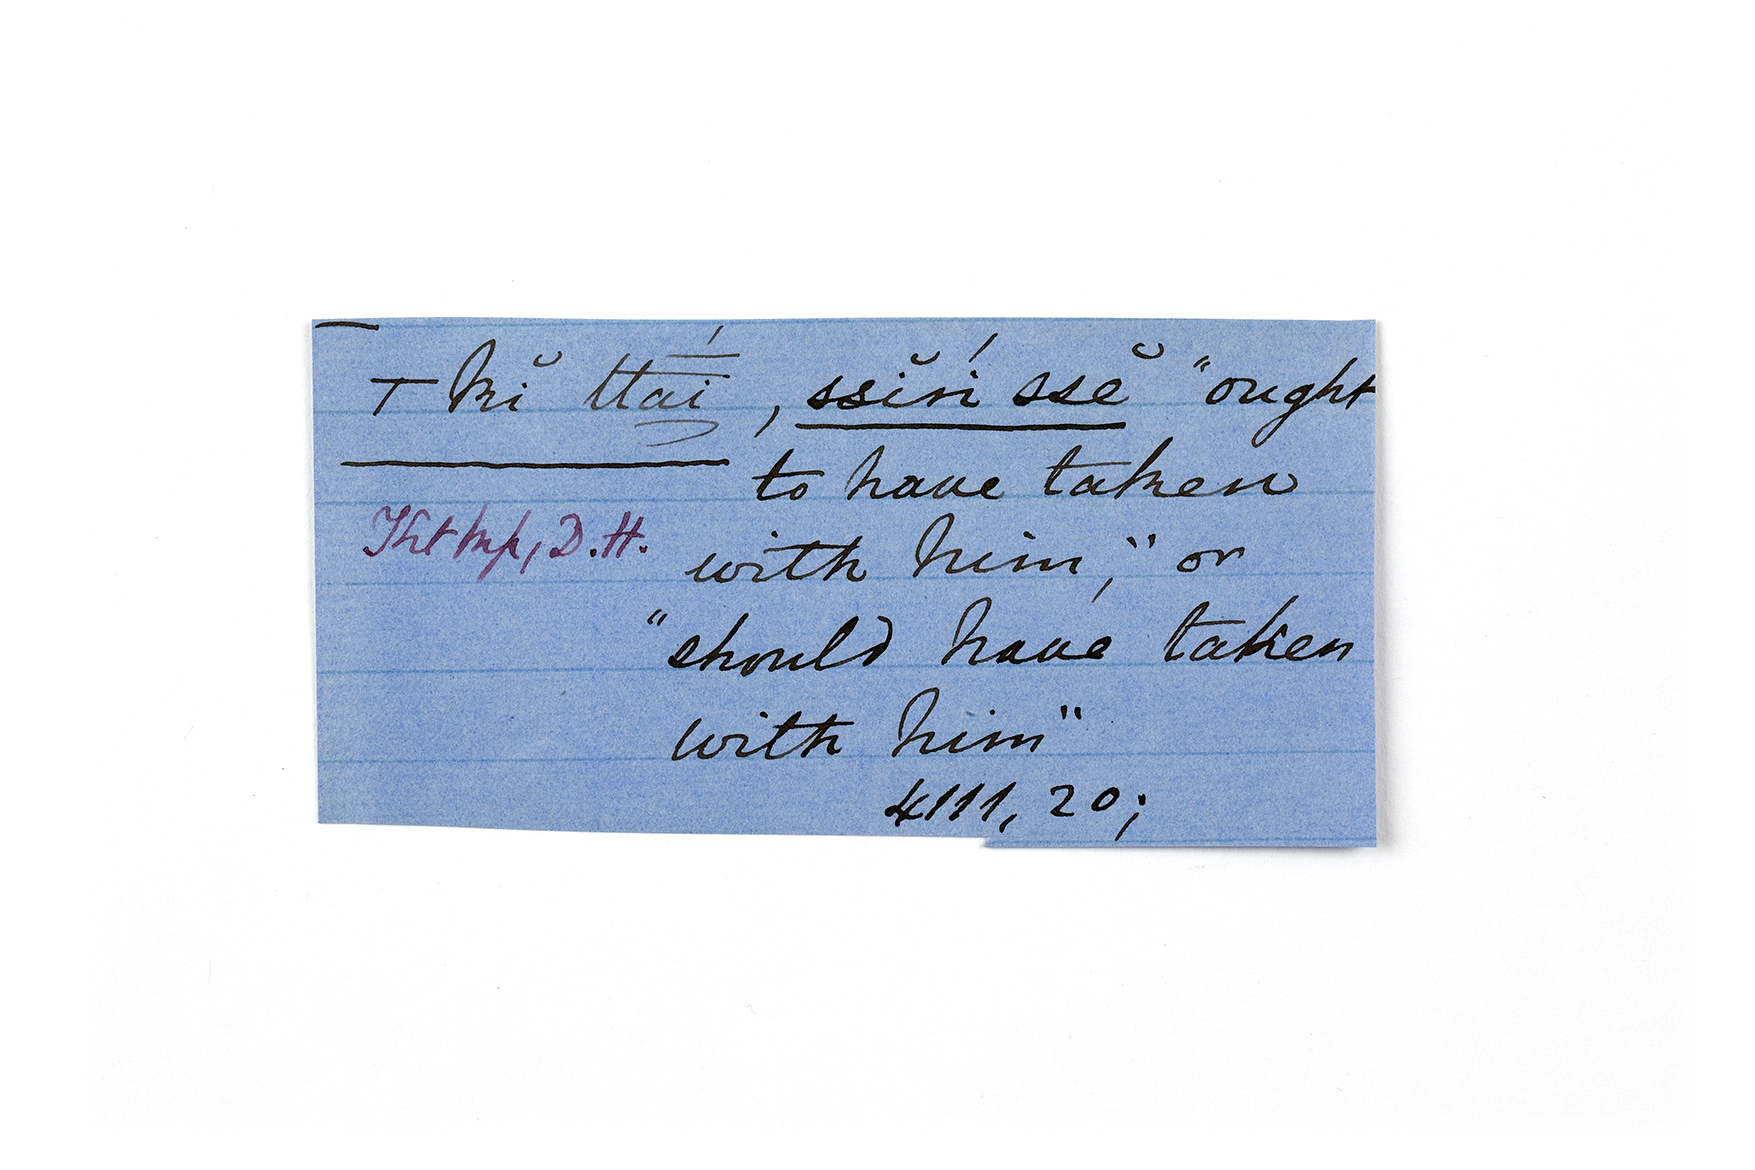 ⊤ kĭ ttaí, ssĭń ssĕ "ought
to have taken
with him," or
"should have taken
with him"
4111, 20;
D.H.